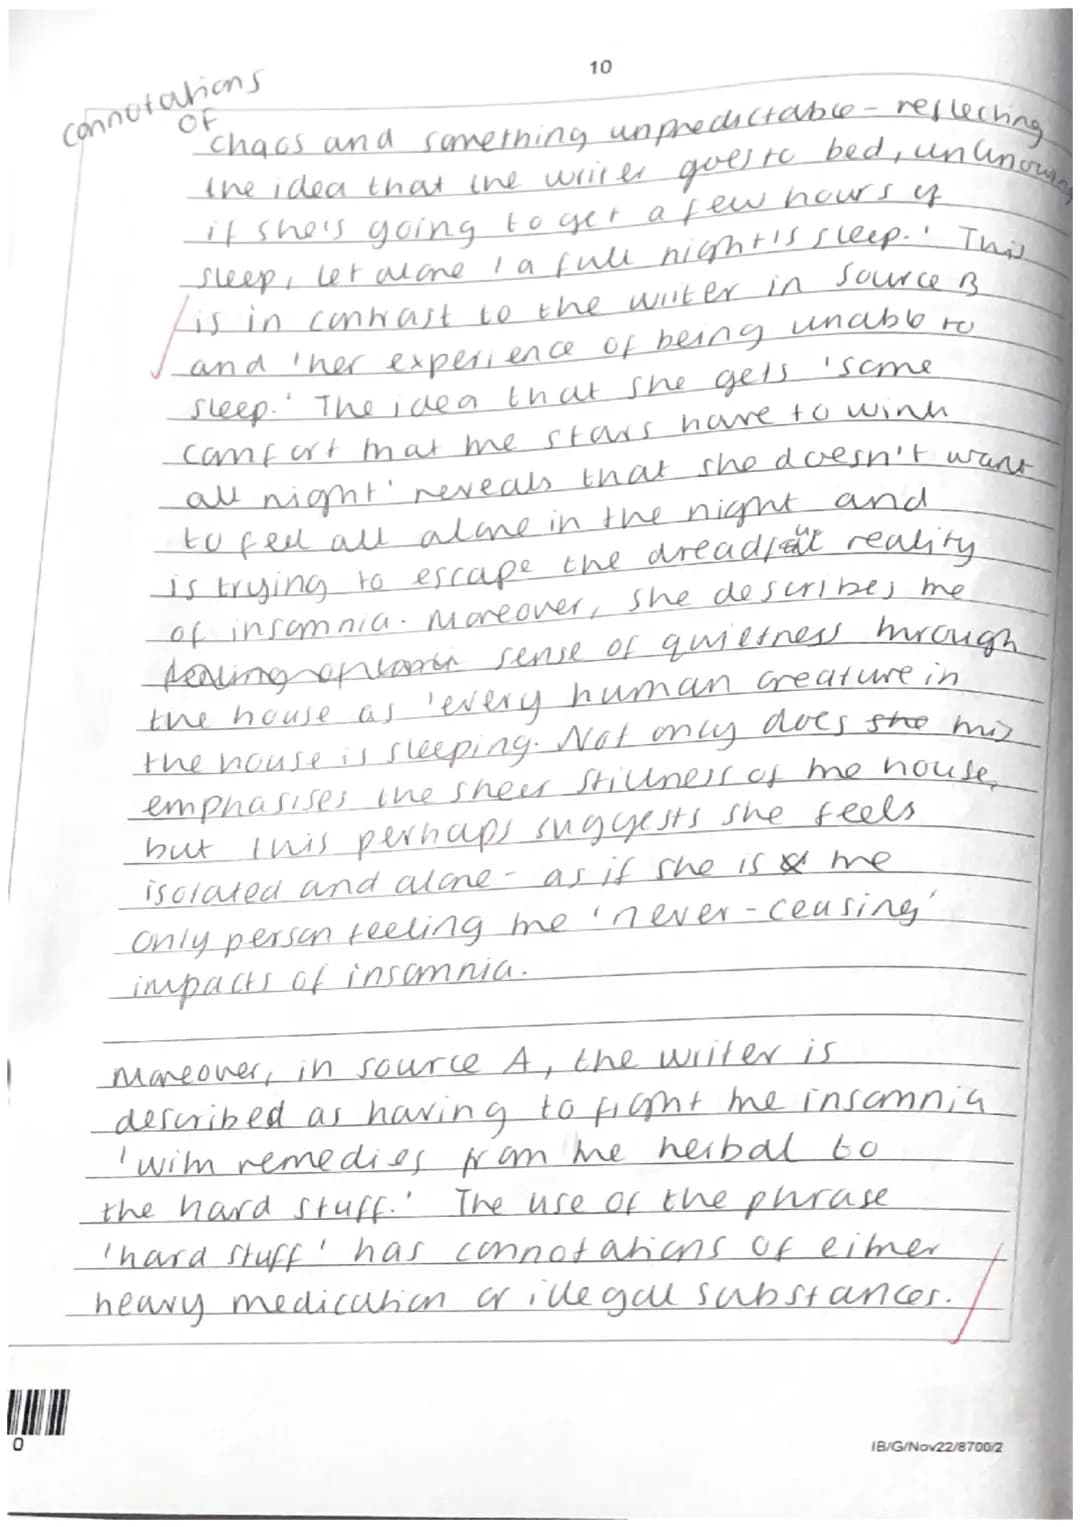 10
connotations
OF
chaos and something unpredictable - reflecting
the idea that the writer goes to bed, unknowing
if she's going to get a few hours of
sleep, let alone 'a full night's sleep.' This
is in contrast to the writer in Source B
and 'her experience of being unable to
sleep.' The idea that she gets 'some
comfort that the stars have to wink
all night' reveals that she doesn't want
to feel all alone in the night and
is trying to escape the dreadful reality
of insomnia. Moreover, she describes the
sense of quietness through
the house as 'every human creature in
the house is sleeping. Not only does she this
emphasises the sheer stillness of the house,
but this perhaps suggests she feels
isolated and alone - as if she is the
only person feeling the 'never-ceasing'
impacts of insomnia.
Moreover, in source A, the writer is
described as having to fight the insomnia
'with remedies from the herbal to
the hard stuff.' The use of the phrase
'hard stuff' has connotations of either
heavy medication or illegal substances.
0
IB/G/Nov22/8700/2